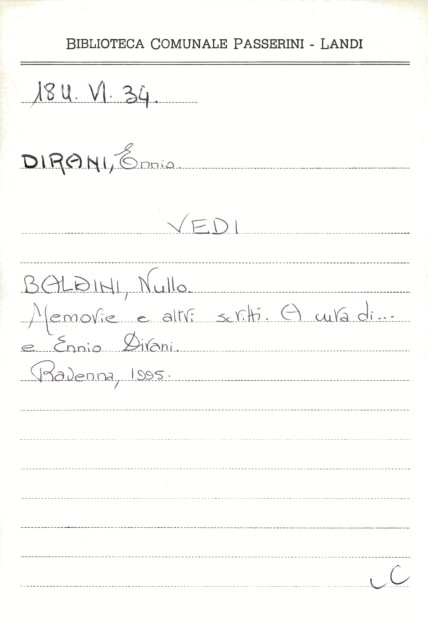 BIBLIOTECA COMUNALE PASSERINI - LANDI
18U. VI. 34.
DIRANI, Ennio.
VEDI
BALDINI, Nullo.
Memorie e altri scritti. A cura di...
e Ennio Dirani.
Ravenna, 1995.